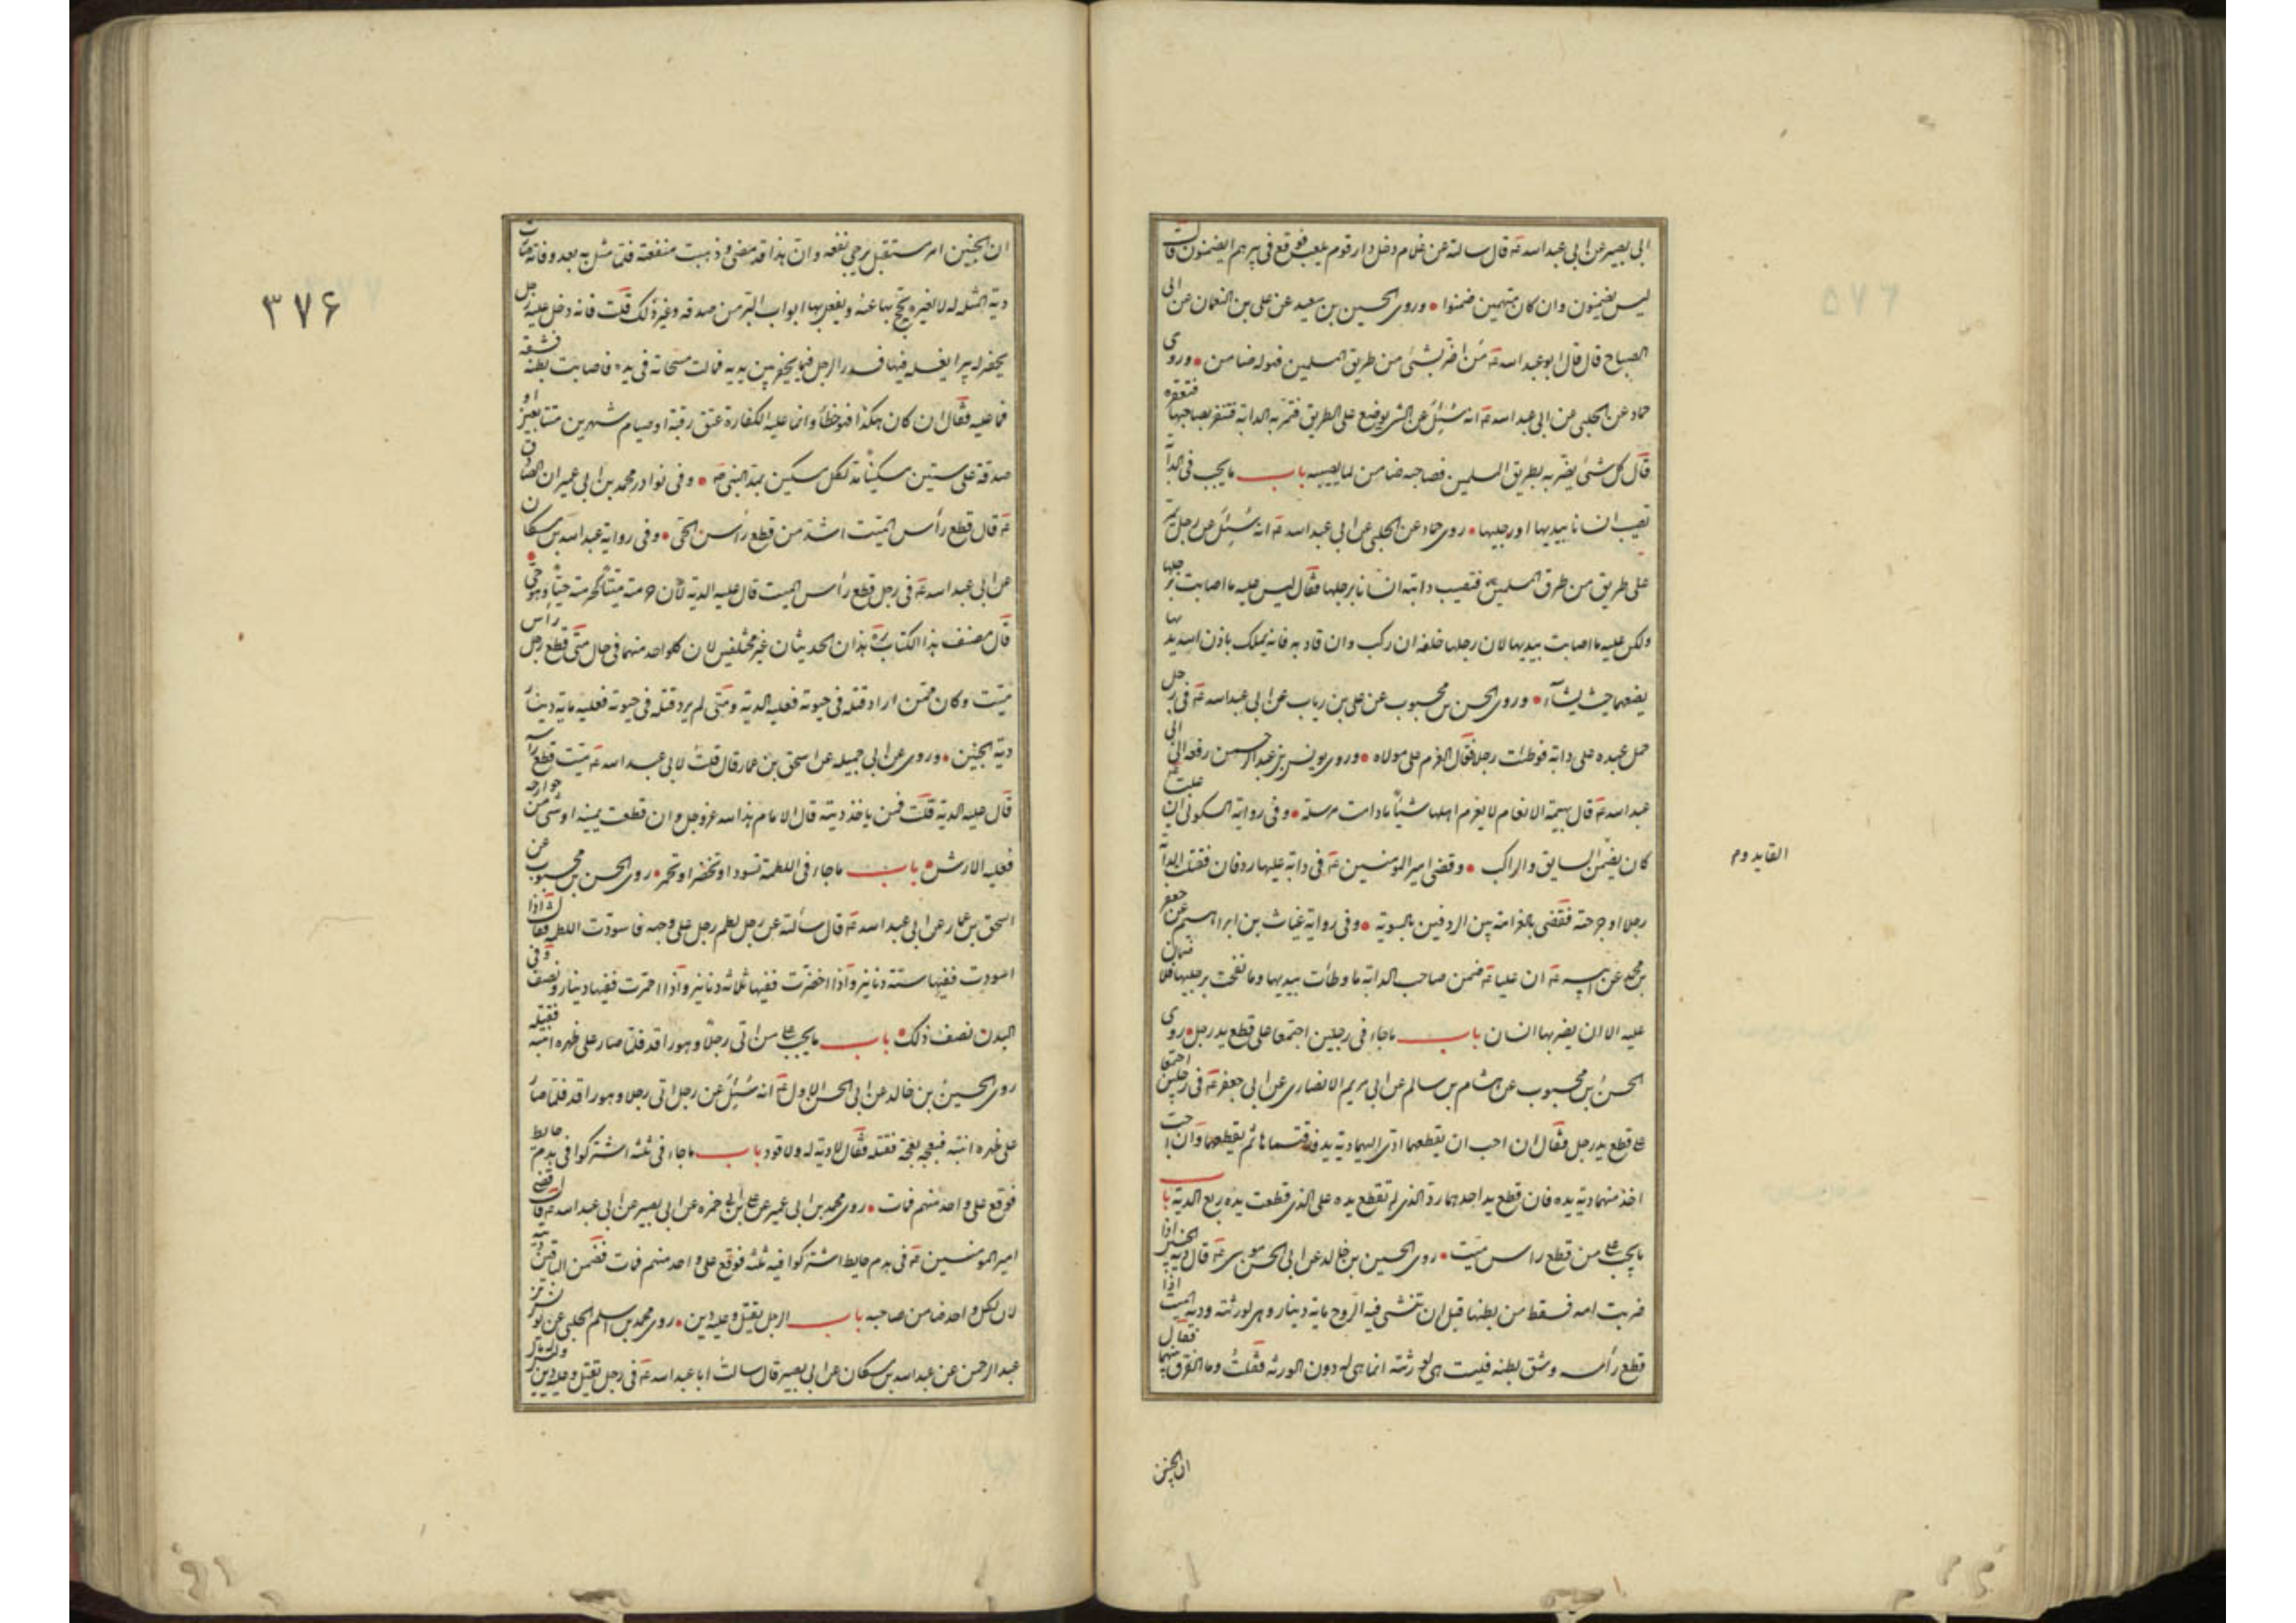 ابى بصير عن ابى عبد الله ع قال سالته عن غلام دخل دار قوم يلعب فوقع فى بيرهم ايضمنون قال
ليس يضمنون وان كان متهمين ضمنوا • وروى الحسين بن سعيد عن على بن النعمان عن ابى
الصباح قال قال ابو عبد الله ع من اضر بشئ من طريق المسلمين فهو له ضامن • وروى
حماد عن الحلبى عن ابى عبد الله ع انه سئل عن الشئ يوضع على الطريق فتمر به الدابة فتنفر بصاحبها فتعقره
قال كل شئ يضر به بطريق المسلمين فصاحبه ضامن لما يصيبه باب ما يجب فى الدابة
تصيب انسانا بيديها او رجليها • روى حماد عن الحلبى عن ابى عبد الله ع انه سئل عن رجل يمر
على طريق من طرق المسلمين فتصيب دابته انسانا برجلها فقال ليس عليه ما اصابت برجلها
ولكن عليه ما اصابت بيديها لان رجلها خلفه ان ركب وان قاد به فانه يملك باذن الله يديها
يضعهما حيث يشاء • وروى الحسن بن محبوب عن على بن رياب عن ابى عبد الله ع فى رجل
حمل عبده على دابة فوطئت رجلا فقال الغرم على مولاه • وروى يونس بن عبد الرحمن رفعه الى ابى
عبد الله ع قال بهيمة الانعام لا يغرم اهلها شيئا ما دامت مرسلة • وفى رواية السكونى ان عليا ع
كان يضمن السايق والراكب • وقضى امير المؤمنين ع فى دابة عليها ردفان فقتلت الدابة
القايد و م
رجلا او جرحته فقضى بالغرامة بين الردفين بالسوية • وفى رواية غياث بن ابراهيم عن جعفر
بن محمد عن ابيه ع ان عليا ع ضمن صاحب الدابة ما وطأت بيديها وما نفحت برجليها فلا ضمان
عليه الا ان يضربها انسان باب ما جاء فى رجلين اجتمعا على قطع يد رجل • روى
الحسن بن محبوب عن هشام بن سالم عن ابى مريم الانصارى عن ابى جعفر ع فى رجلين اجتمعا
على قطع يد رجل فقال ان احب ان يقطعهما ادى اليهما دية يد فاقتسماها ثم يقطعهما وان احب
اخذ منهما دية يده فان قطع يد احدهما رد الذى لم تقطع يده على الذى قطعت يده ربع الدية باب
ما يجب على من قطع راس ميت • روى الحسين بن خالد عن ابى الحسن موسى ع قال دية الجنين اذا
ضربت امه فسقط من بطنها قبل ان تنشى فيه الروح ماية دينار وهى لورثته ودية الميت اذا
قطع رأسه وشق بطنه فليست هى لورثته انما هى له دون الورثة فقلت وما الفرق بينهما فقال
ان الجنين
٣٧۶
ان الجنين امر مستقبل مرجى نفعه وان هذا قد مضى وذهبت منفعته فلما مثل به بعد وفاته صارت
دية المثلة له لا لغيره يحج بها عنه ويفعل بها ابواب البر من صدقة وغير ذلك قلت فانه دخل عليه رجل
يحفر له بيرا يغسله فيها فسدر الرجل فيما يحفر بين يديه فمالت مسحاته فى يده فاصابت بطنه فشقه
فما عليه فقال ان كان هكذا فهو خطأ وانما عليه الكفارة عتق رقبة او صيام شهرين متتابعين او
صدقة على ستين مسكينا مد لكل مسكين بمد النبى ص • وفى نوادر محمد بن ابى عمير ان الصادق
ع قال قطع رأس الميت اشد من قطع رأس الحى • وفى رواية عبد الله بن مسكان
عن ابى عبد الله ع فى رجل قطع رأس الميت قال عليه الدية لان حرمته ميتا كحرمته حيا وهو حى •
قال مصنف هذا الكتاب ره هذان الحديثان غير مختلفين لان كل واحد منهما فى حال متى قطع رجل راس
ميت وكان ممن اراد قتله فى حيوته فعليه الدية ومتى لم يرد قتله فى حيوته فعليه ماية دينار
دية الجنين • وروى عن ابى جميله عن اسحق بن عمار قال قلت لابى عبد الله ع ميت قطع رأسه
قال عليه الدية قلت فمن ياخذ ديته قال الامام هذا لله عز وجل وان قطعت يمينه او شئ من جوارحه
فعليه الارش • باب ما جاء فى اللطمة تسود او تخضر او تحمر • روى الحسن بن محبوب عن
اسحق بن عمار عن ابى عبد الله ع قال سألته عن رجل لطم رجل على وجهه فاسودت اللطمة فقال اذا
اسودت ففيها ستة دنانير واذا اخضرت ففيها ثلاثة دنانير واذا احمرت ففيها دينار ونصف وفى
البدن نصف ذلك • باب ما يجب على من اتى رجلا وهو راقد فلما صار على ظهره انتبه فقتله
روى الحسين بن خالد عن ابى الحسن الاول ع انه سئل عن رجل اتى رجلا وهو راقد فلما صار
على ظهره انتبه فبعجه بعجة فقتله فقال لا دية له ولا قود باب ما جاء فى ثلثه اشتركوا فى هدم حايط
فوقع على واحد منهم فمات • روى محمد بن ابى عمير عن على بن ابى حمزه عن ابى بصير عن ابى عبد الله ع قال قضى
امير المؤمنين ع فى هدم حايط اشتركوا فيه ثلثه فوقع على واحد منهم فمات فضمن الباقين ديته
لان لكل واحد ضامن صاحبه باب الرجل يقتل وعليه دين • روى محمد بن اسلم الجبلى عن يونس بن
عبد الرحمن عن عبد الله بن مسكان عن ابى بصير قال سالت ابا عبد الله ع فى رجل يقتل وعليه دين